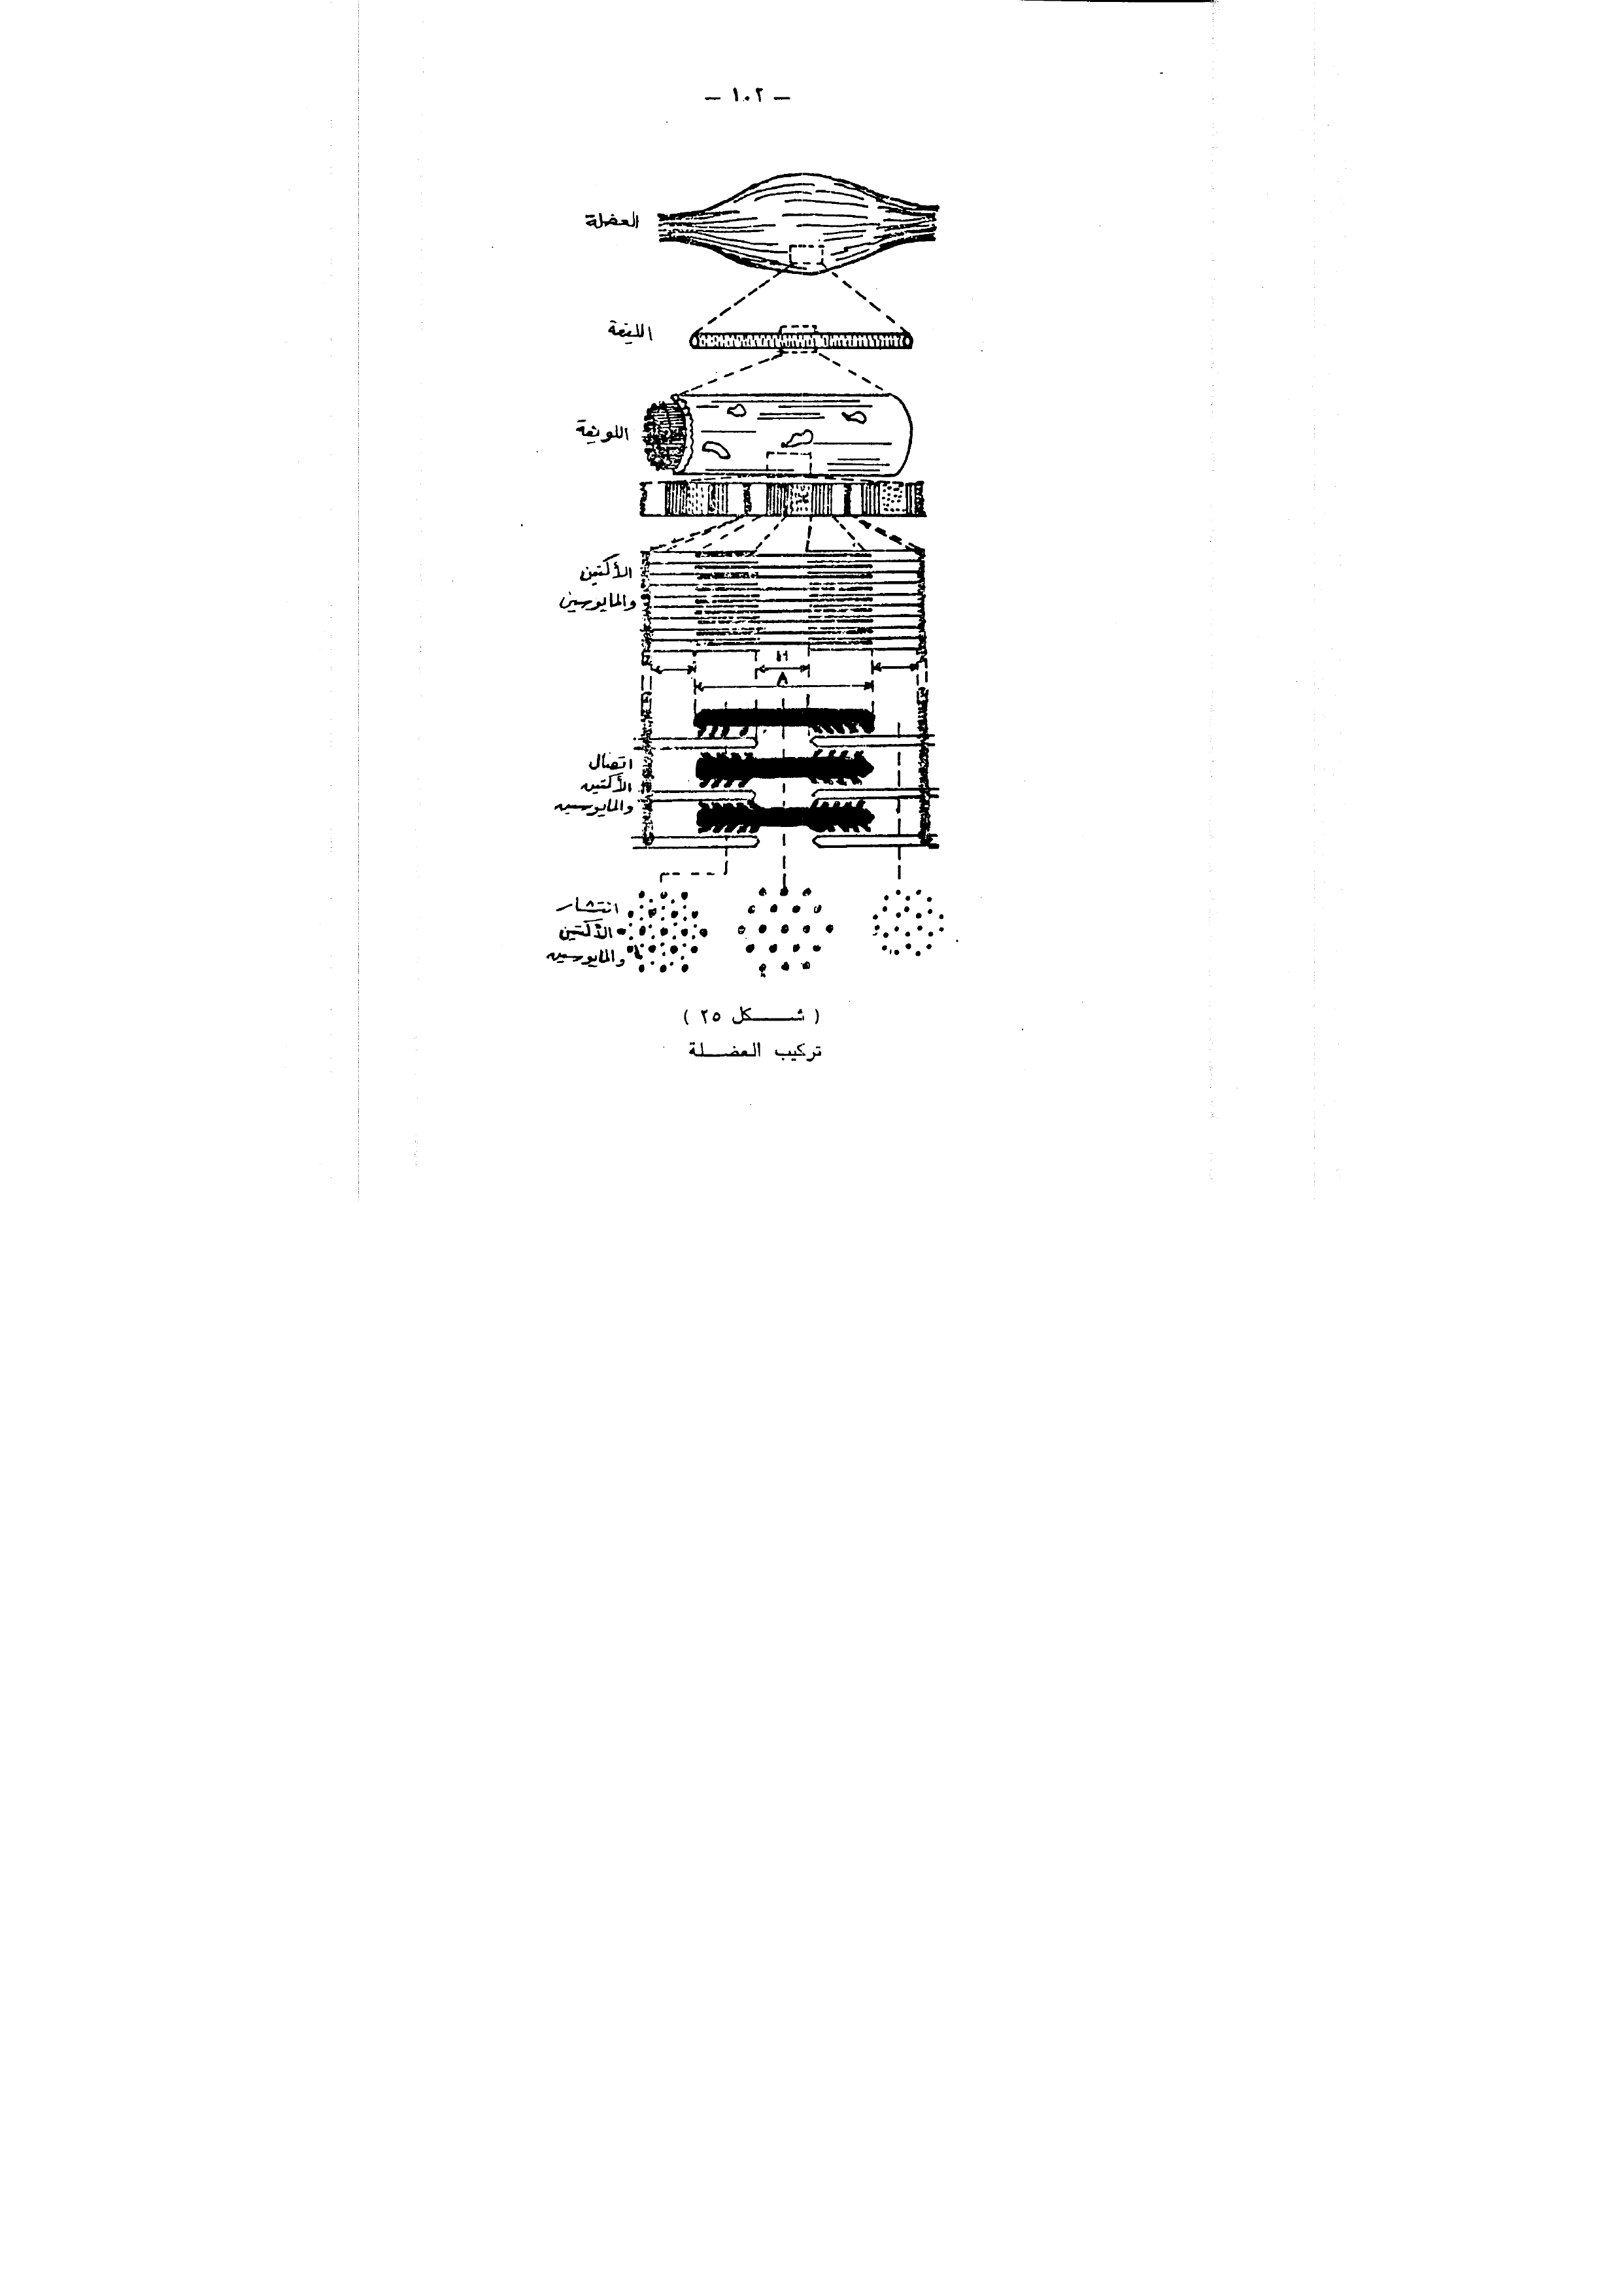 — ١٠٢ —
العضلة
الليفة
اللويفة
الأكتين
والمايوسين
H
A
اتصال
الأكتين
والمايوسين
انتشار
الأكتين
والمايوسين
( شـــكل ٢٥ )
تركيب العضـــلة